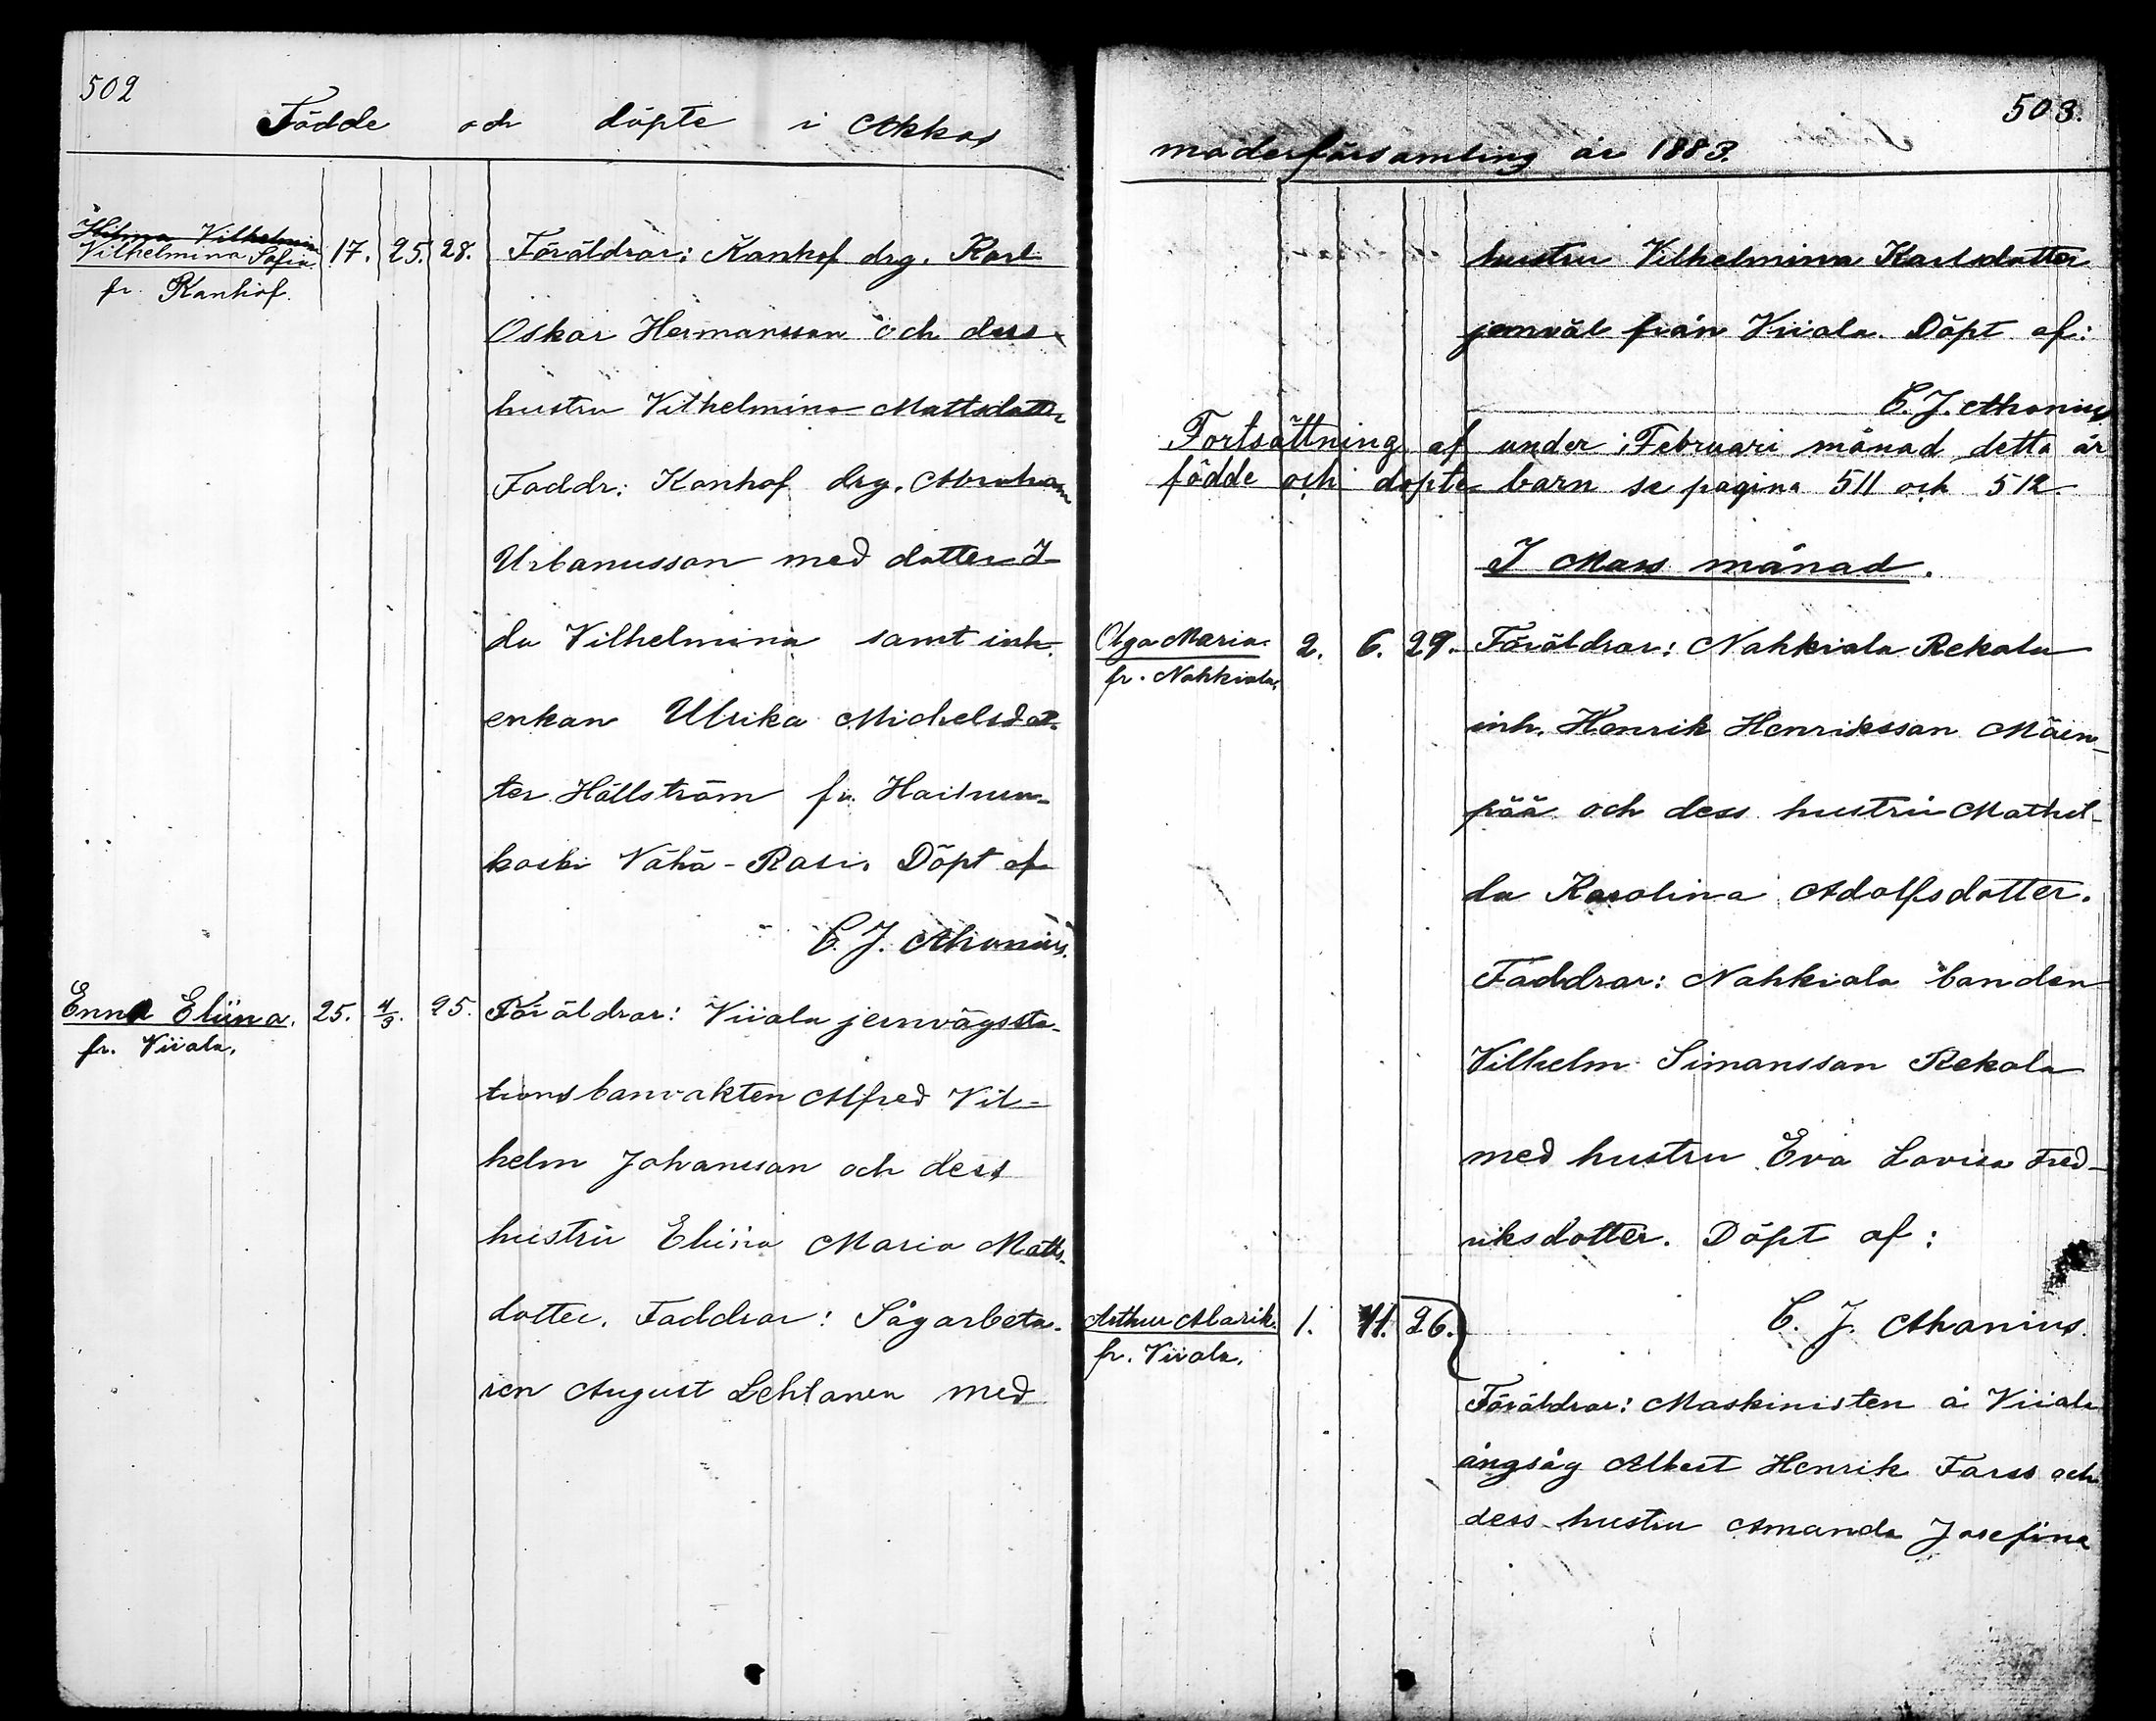 502
Födde och döpte i Akkas
Hilma Vilhelmina
Vilhelmina Sofia
fr. Kanhof.
17. 25. 28.
Föräldrar: Kanhof drg. Karl
Oskar Hermansson och dess
hustru Vilhelmina Mattsdotter
Faddr: Kanhof drg. Abraham
Urbanusson med dotter I-
da Vilhelmina samt inh.
enkan Ulrika Michelsdot-
ter Hällström fr. Haihun-
koski Vähä-Rasi. Döpt af
C. J. Ahonius.
Enna Eliina.
fr. Viiala.
25. 4/3. 25.
Föräldrar: Viiala jernvägssta-
tions banvakten Alfred Vil-
helm Johansson och dess
hustru Eliina Maria Matts-
dotter. Faddrar: Sågarbeta-
ren August Lehtanen med
503.
moderförsamling år 1883.
hustru Vilhelmina Karlsdotter
jemväl från Viiala. Döpt af:
C. J. Ahonius
Fortsättning af under Februari månad detta år
födde och döpte barn se pagina 511 och 512.
I Mars månad.
Olga Maria.
fr. Nahkiala.
2. 6. 29.
Föräldrar: Nahkiala Rekola
inh. Henrik Henriksson Mäen-
pää och dess hustru Mathil-
da Karolina Adolfsdotter.
Faddrar: Nahkiala bonden
Vilhelm Simonsson Rekola
med hustru Eva Lovisa Fred-
riksdotter. Döpt af:
C. J. Ahonius.
Arthur Alarik.
fr. Viiala.
1. 11. 26.
Föräldrar: Maskinisten å Viiala
ångsåg Albert Henrik Forss och
dess hustru Amanda Josefina